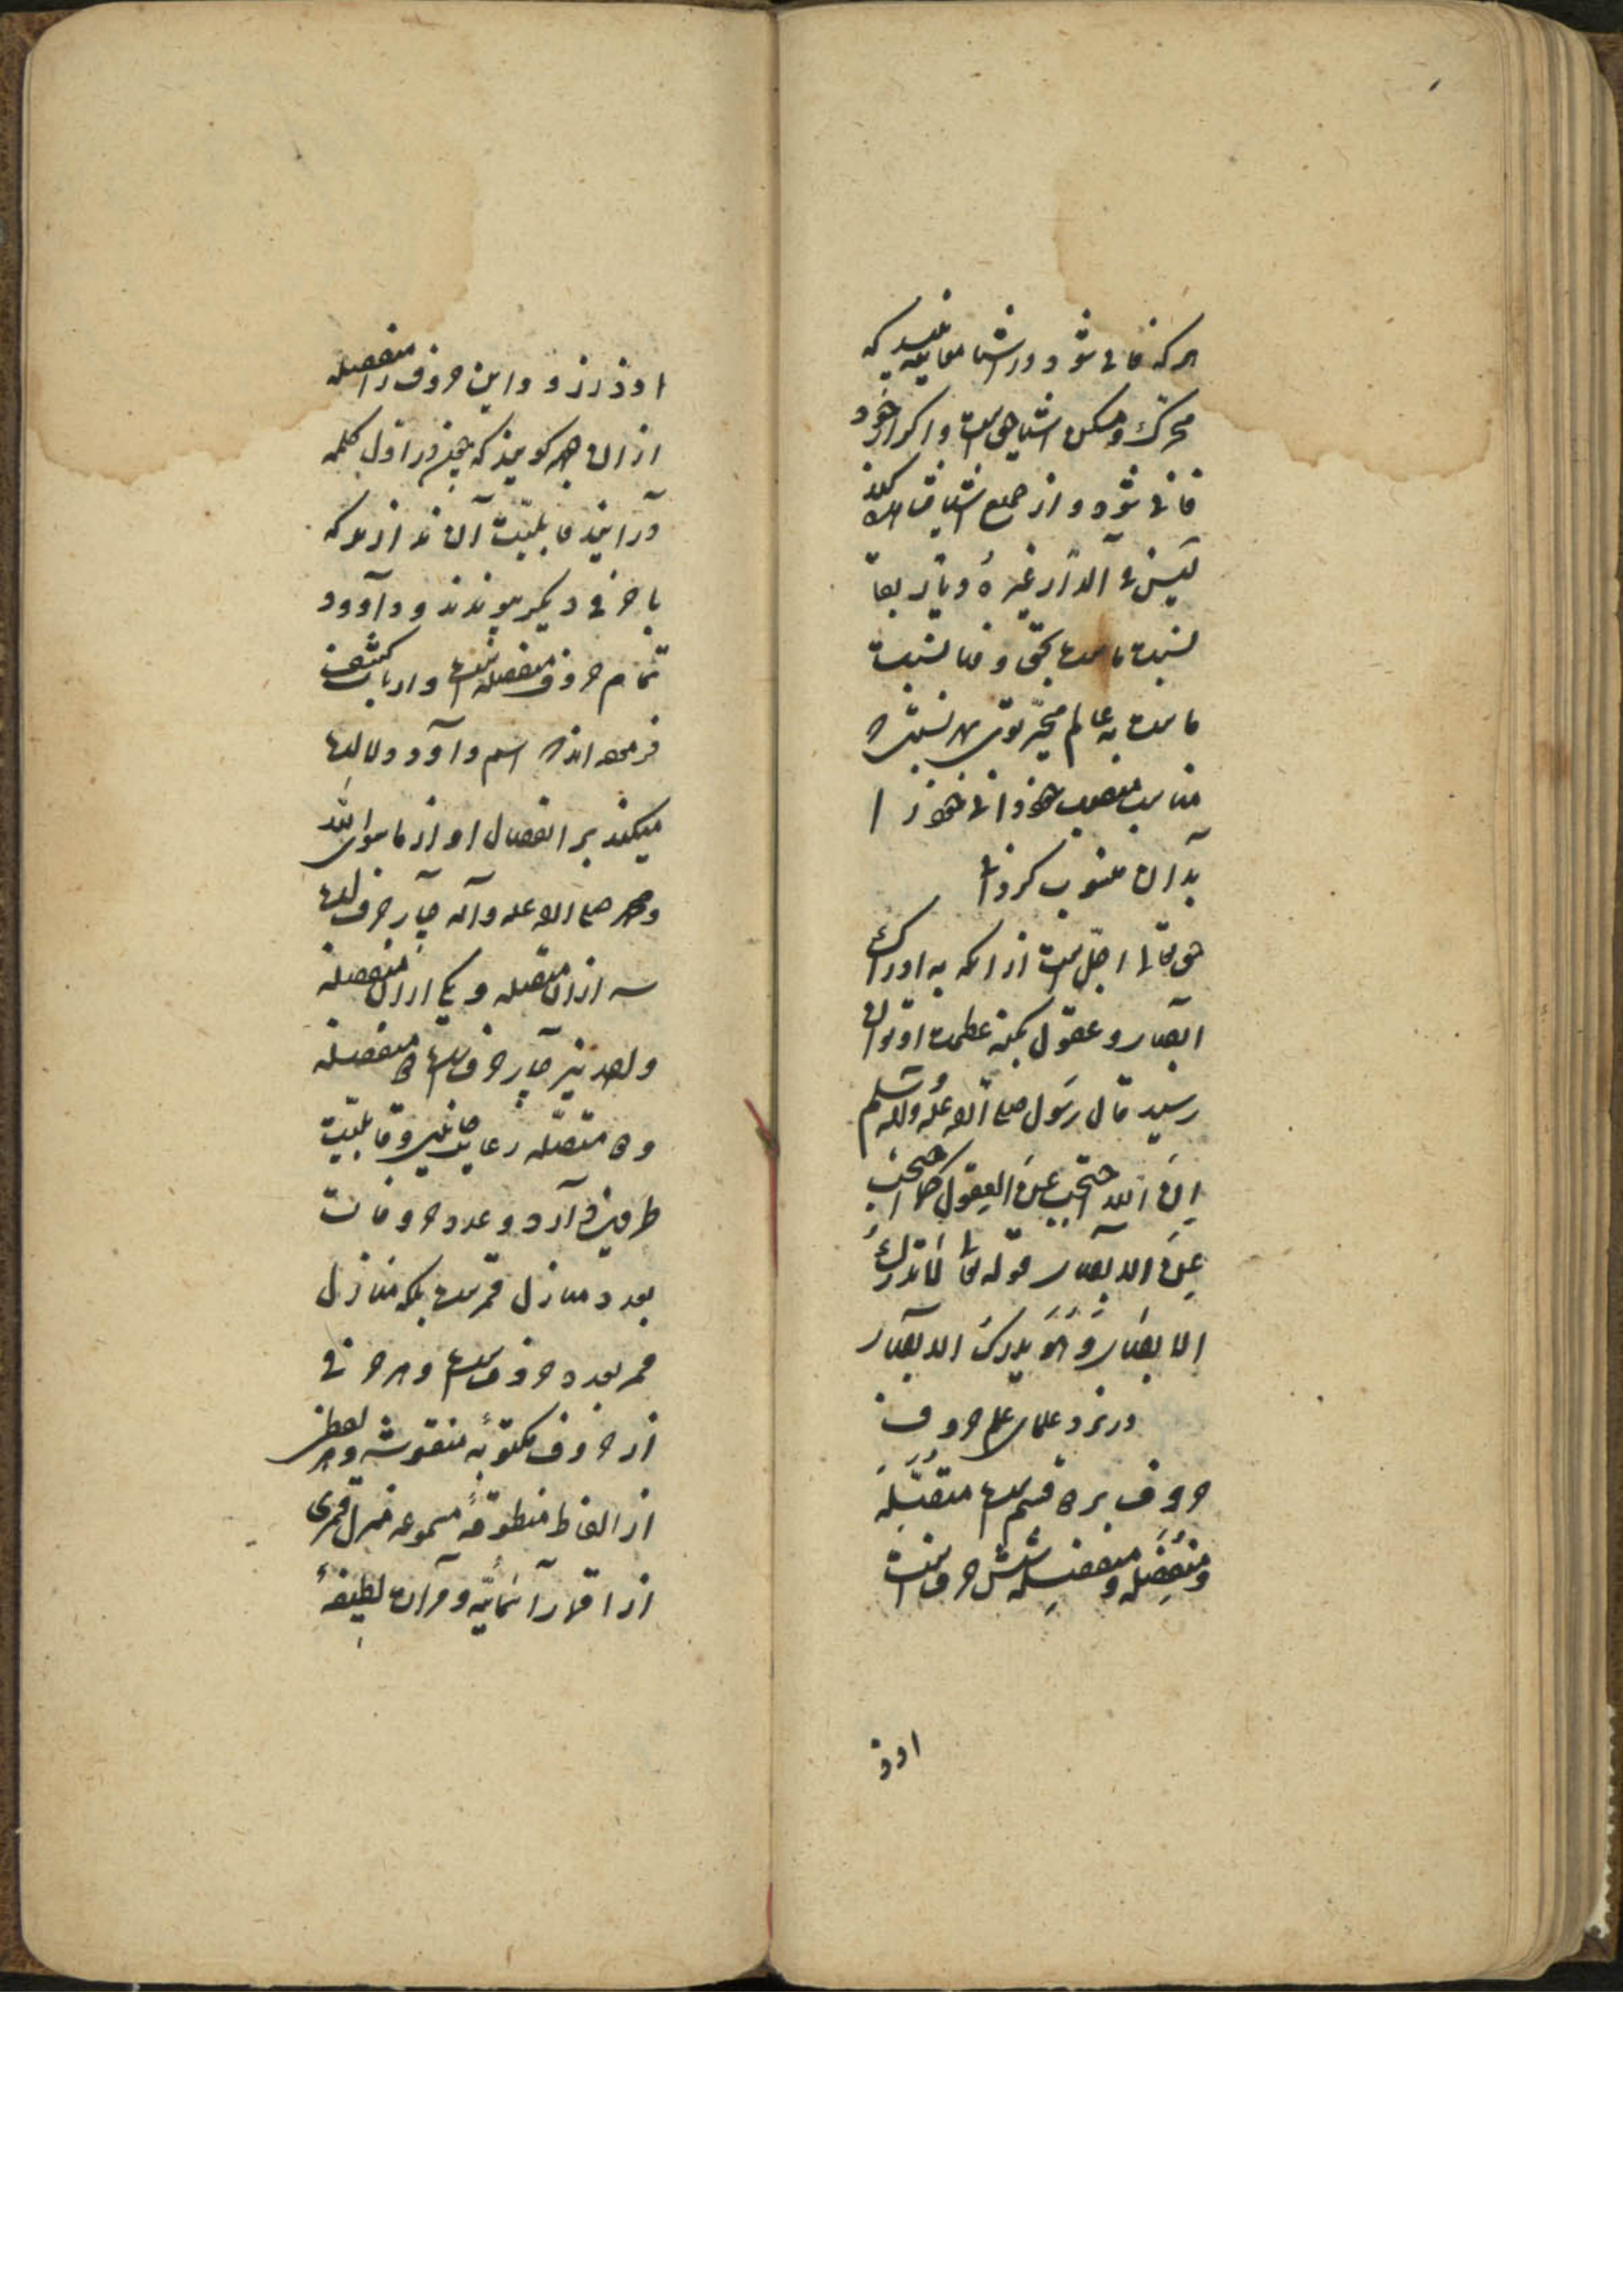 هر که فانی شود در اشیا معاینه بیند که
محرک و مسکن اشیا حق است و اگر از خود
فانی شود و از جمیع اشیا
لیس فی الدار غیره و
نسبت ماست بحق و فنا نسبت
ماست به عالم هر نسبت که
مناسب خود دانی خود را
بدان منسوب گردان
حق تعالی اجل است از آنکه به ادراک
ابصار و عقول بکنه عظمت او توان
رسید قال رسول صلی الله علیه وآله وسلم
ان الله احتجب عن العقول کما احتجب
عن الابصار قوله تعالی لا تدرکه
الابصار وهو یدرک الابصار
در نزد علمای علم حروف
حروف بر دو قسم است متصله
و منفصله و منفصله شش حرف است
اود
ا د ذ ر ز و و این حروف را منفصله
از آن جهه گویند که چیزی در اول کلمه
در آیند قابلیت آن ندارند که
با حرفی دیگر پیوندند و داوود
تمام حروف منفصله است و ارباب کشف
فرموده اند که اسم داود دلالت
میکند بر انفصال او از ما سوی الله
و محمد صلی الله علیه وآله چهار حرف است
سه از آن متصله و یکی از آن منفصله
و احمد نیز چهار حرف است دو منفصله
و دو متصله رعایت جانبین و قابلیت
طرفین دارد و عدد حروفات
بعدد منازل قمر است بلکه منازل
قمر بعدد حروف است و هر حرفی
از حروف مکتوبه منقوشه و هر لفظی
از الفاظ منطوقه مسموعه منزل قمری
از اقمار آسمانیه و مرآت لطیفه